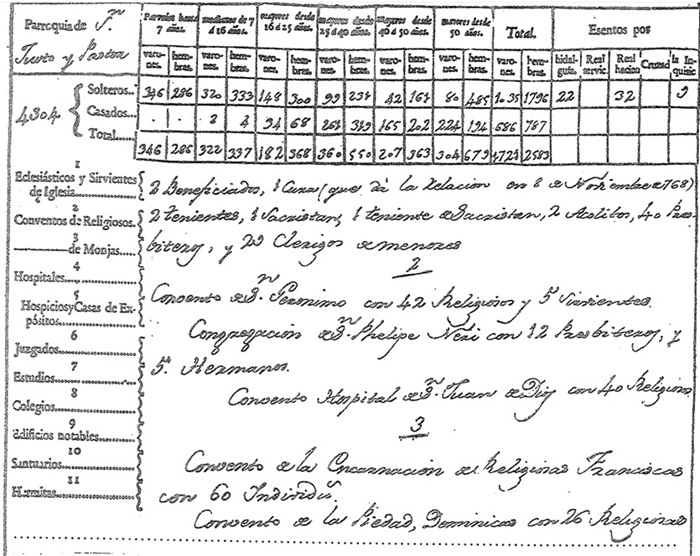 Parroquia de Sn.
Justo y Pastor
Parvulos hasta 7 años. muchachos de 7 á 16 años. mayores desde 16 á 25 años. mayores desde 25 á 40 años. mayores desde 40 á 50 años. mayores desde 50 años. Total. Esentos por
varones. hembras. varones. hembras. varones. hembras. varones. hembras. varones. hembras. varones. hembras. varones. hembras. hidalguía. Real servic. Real hacien Cruzad la Inquisic
4304 { Solteros... 346 286 320 333 148 300 99 231 42 161 80 485 1035 1796 22 32 9
Casados... . . 2 4 34 68 261 319 165 202 224 194 686 787
Total...... 346 286 322 337 182 368 360 550 207 363 304 679 1721 2583
1
Eclesiásticos y Sirvientes de Iglesia....
2
Conventos de Religiosos.
3
———de Monjas.....
4
Hospitales.....
5
Hospicios y Casas de Expósitos.....
6
Juzgados.....
7
Estudios.....
8
Colegios.....
9
Edificios notables.....
10
Santuarios.....
11
Hermitas.....
2 Beneficiados, 1 Cura (que dá la relacion en 2 de Noviembre de 1768)
2 tenientes, 1 Sacristan, 1 teniente de Sacristan, 2 Acolitos, 40 Pres-
biteros, y 29 Clerigos de menores
2
Convento de Sn. Geronimo con 42 Religiosos y 5 Sirvientes.
Congregacion de Sn. Phelipe Neri con 12 Presbiteros, y
5 Hermanos.
Convento Hospital de Sn. Juan de Dios con 40 Religiosos
3
Convento de la Encarnacion de Religiosas Franciscas
con 60 Individs.
Convento de la Piedad, Dominicas con 26 Religiosas